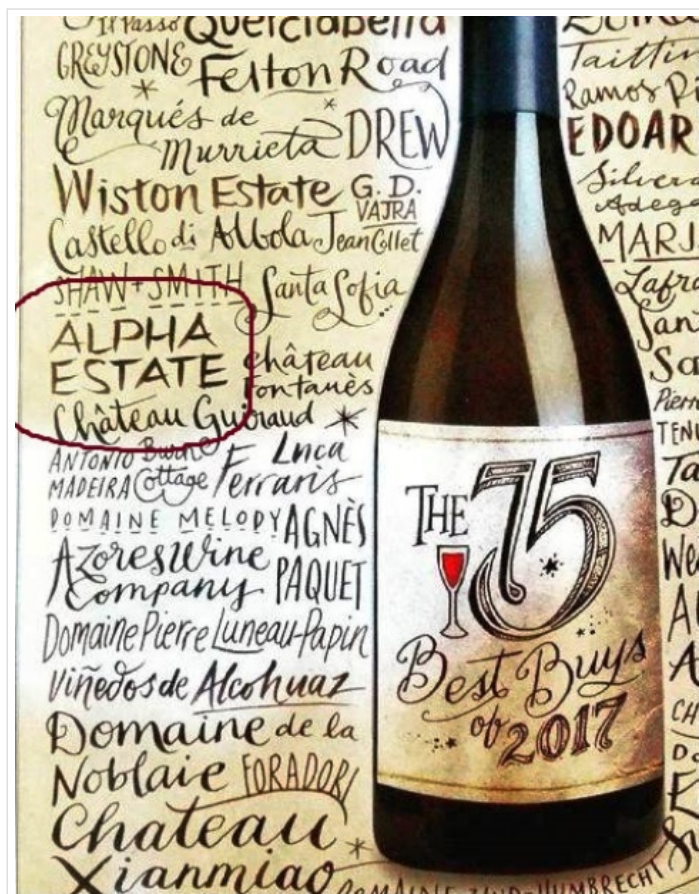 Il Passo Querciabella
GREYSTONE Felton Road
Marqués de
Murrieta DREW
Wiston Estate G. D.
VAJRA
Castello di Albola Jean Collet
SHAW + SMITH Santa Sofia
ALPHA
ESTATE
château
Fontanès
Château Guiraud
ANTONIO
MADEIRA
Burn
Cottage
Luca
Ferraris
DOMAINE MELODY
AGNÈS
PAQUET
Azores Wine
Company
Domaine Pierre Luneau-Papin
Viñedos de Alcohuaz
Domaine de la
Noblaie FORADORI
Chateau
Xianmiao
DOMAINE ZIND-HUMBRECHT
THE 75
Best Buys
of 2017
Taittin
Ramos Pi
EDOAR
Silvera
Adega
MARJ
Lafra
San
Sa
Pierre
TENU
Ta
D
Wei
A
A
CH
Do
E
Su